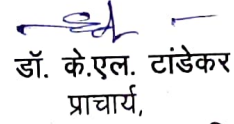 डॉ. के.एल. टांडेकर
प्राचार्य,